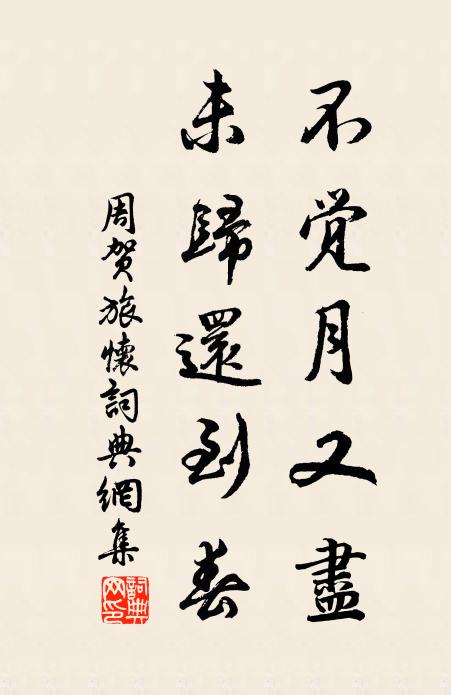 不覚月又盡
未歸還到春
周贺旅懷詞典網集
詞典网印